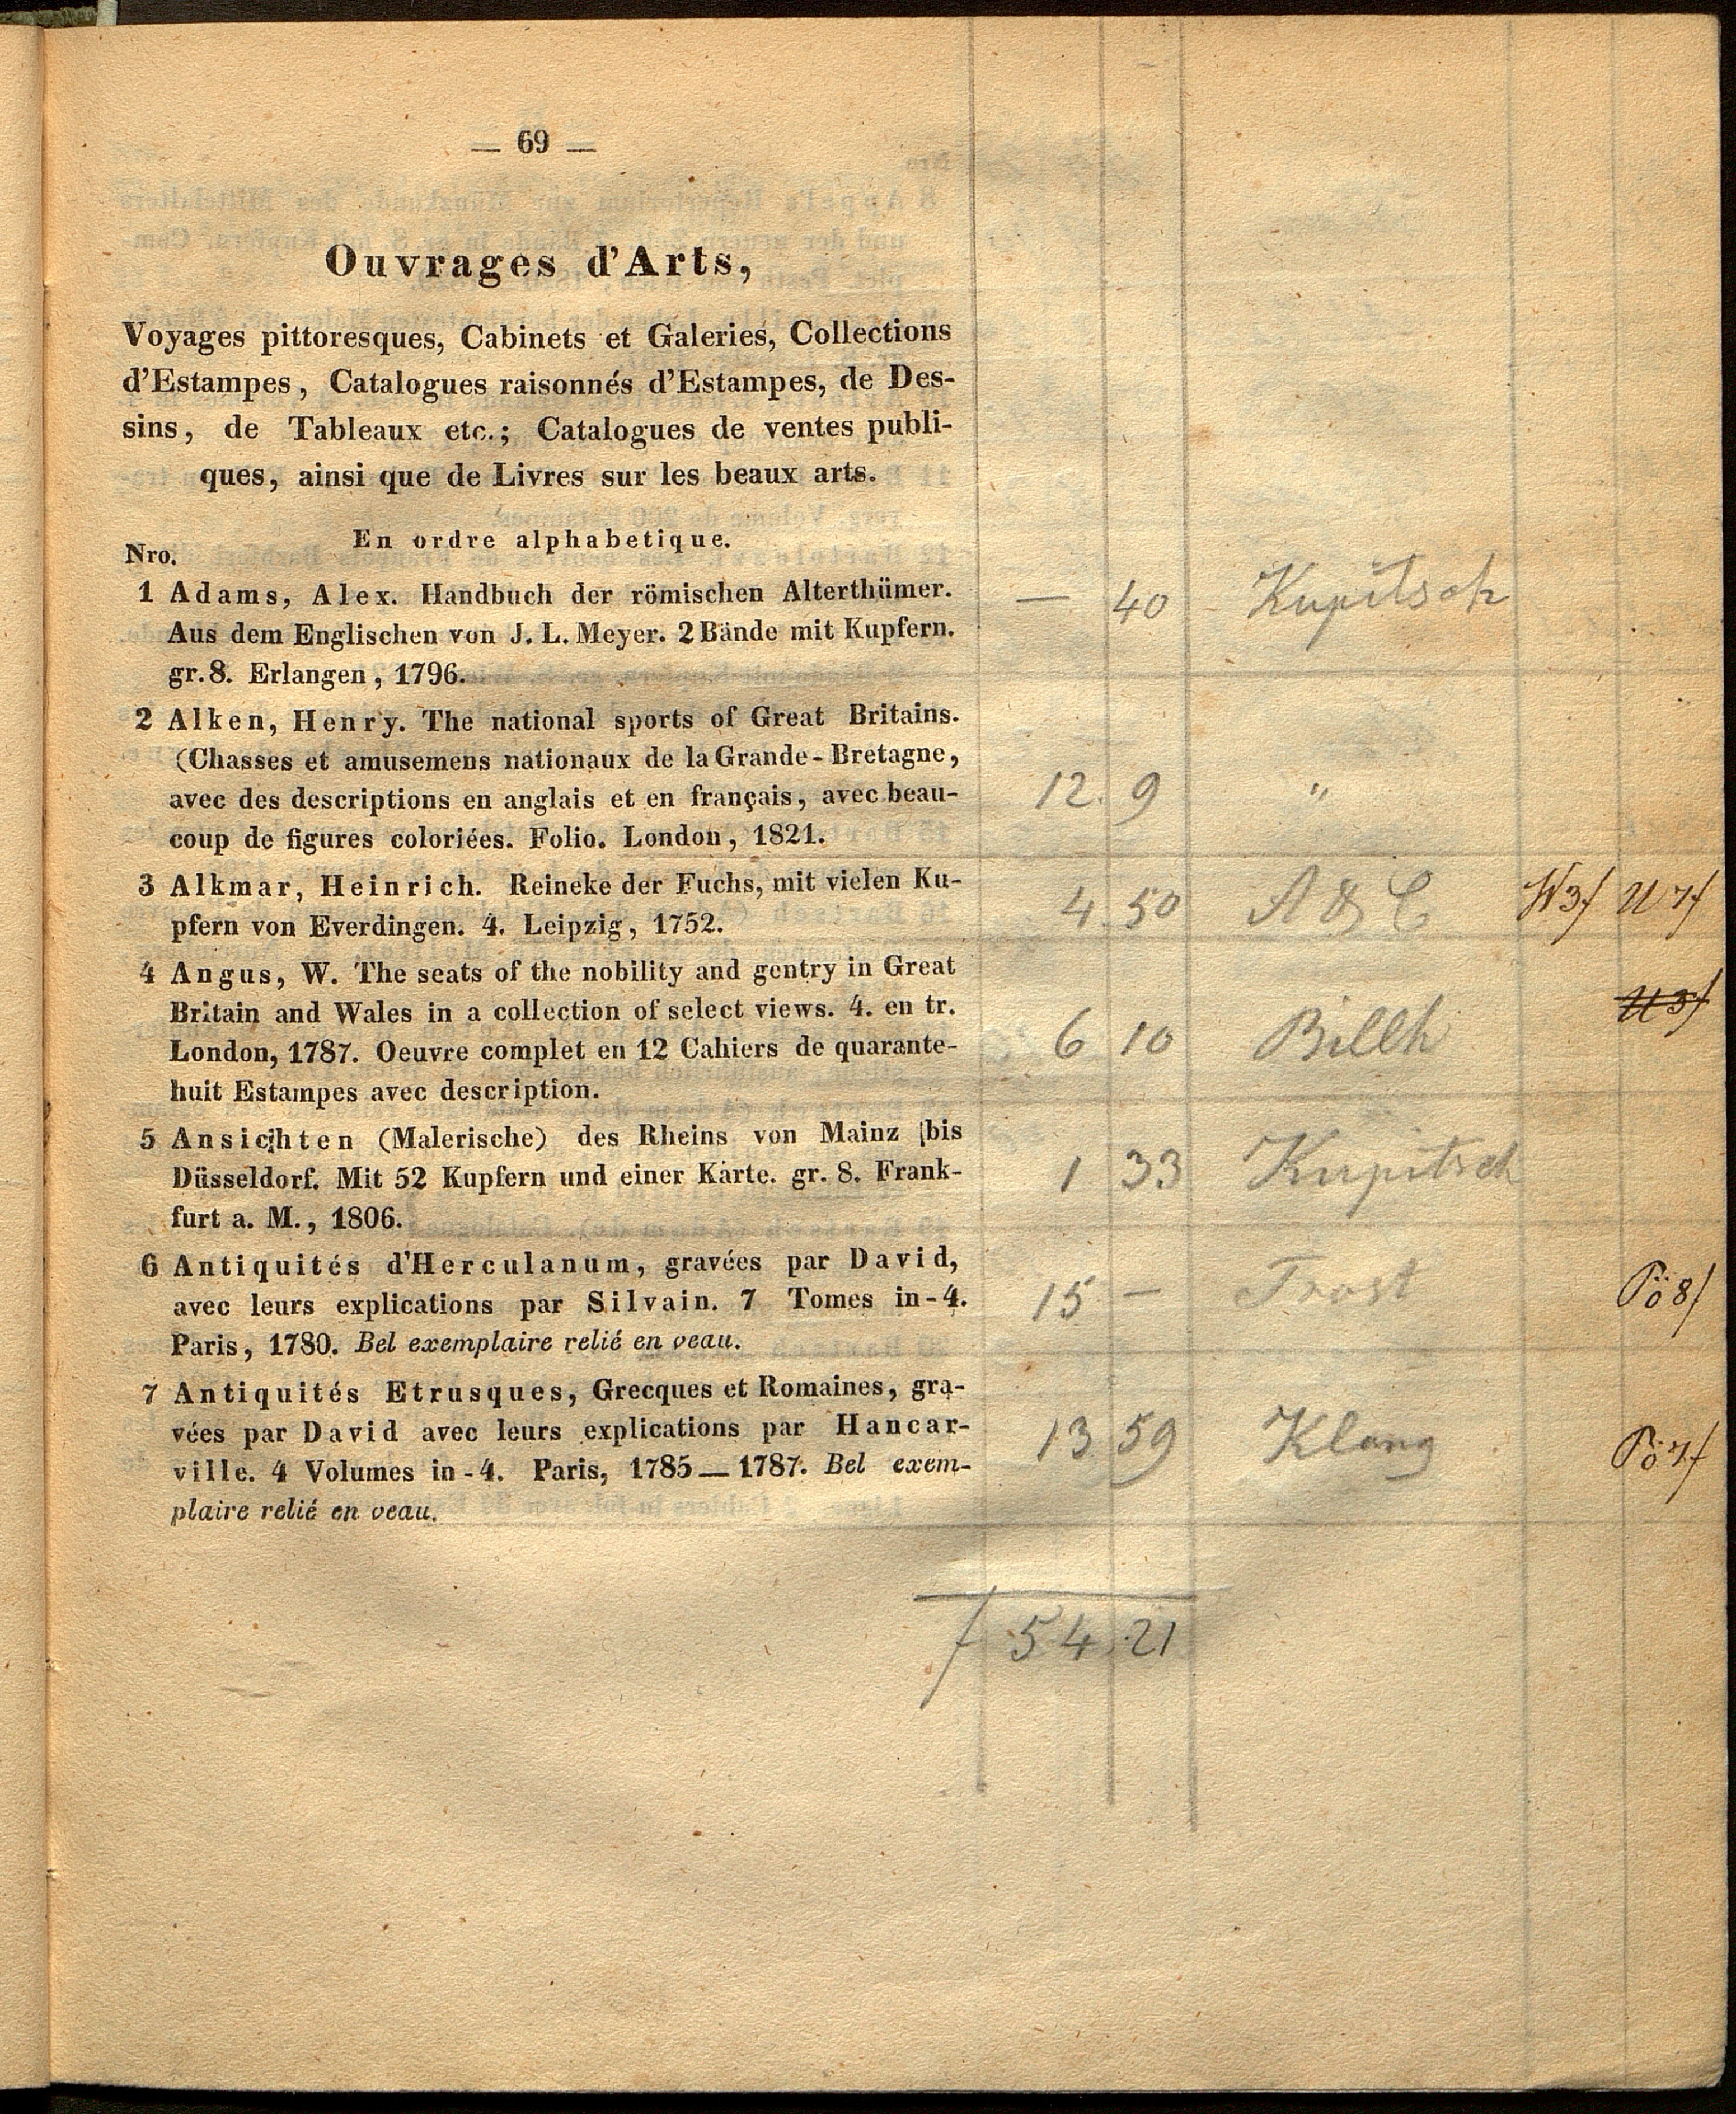 — 69 —
Ouvrages d'Arts,
Voyages pittoresques, Cabinets et Galeries, Collections
d'Estampes, Catalogues raisonnés d'Estampes, de Des-
sins, de Tableaux etc.; Catalogues de ventes publi-
ques, ainsi que de Livres sur les beaux arts.
En ordre alphabetique.
Nro.
1 Adams, Alex. Handbuch der römischen Alterthümer. — 40 Kupitsch
Aus dem Englischen von J. L. Meyer. 2 Bände mit Kupfern.
gr. 8. Erlangen, 1796.
2 Alken, Henry. The national sports of Great Britains.
(Chasses et amusemens nationaux de la Grande-Bretagne,
avec des descriptions en anglais et en français, avec beau- 12. 9 "
coup de figures coloriées. Folio. London, 1821.
3 Alkmar, Heinrich. Reineke der Fuchs, mit vielen Ku- 4 50 A & C W3f U7f
pfern von Everdingen. 4. Leipzig, 1752.
4 Angus, W. The seats of the nobility and gentry in Great
Britain and Wales in a collection of select views. 4. en tr. U3f
London, 1787. Oeuvre complet en 12 Cahiers de quarante- 6 10 Billh
huit Estampes avec description.
5 Ansichten (Malerische) des Rheins von Mainz bis
Düsseldorf. Mit 52 Kupfern und einer Karte. gr. 8. Frank- 1 33 Kupitsch
furt a. M., 1806.
6 Antiquités d'Herculanum, gravées par David,
avec leurs explications par Silvain. 7 Tomes in-4. 15 — Trost Pö 8f
Paris, 1780. Bel exemplaire relié en veau.
7 Antiquités Etrusques, Grecques et Romaines, gra-
vées par David avec leurs explications par Hancar- 13 59 Klang Pö 7f
ville. 4 Volumes in-4. Paris, 1785—1787. Bel exem-
plaire relié en veau.
f 54.21